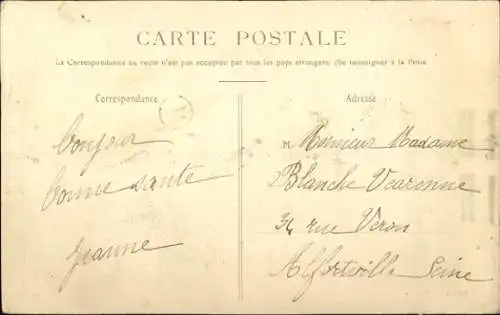 CARTE POSTALE
La Correspondance au recto n'est pas acceptée par tous les pays étrangers. (Se renseigner à la Poste
Correspondance
Adresse
Bonjour
bonne sante
Jeanne
M. Monsieur Madame
Blanche
34 rue Veron
Alfortville Seine